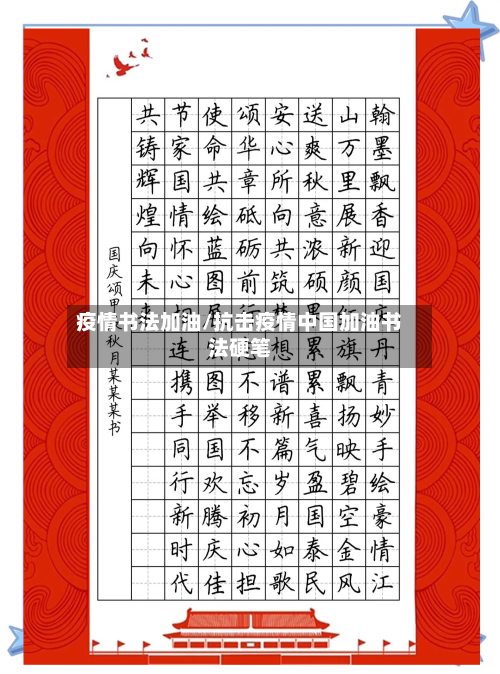 翰墨飘香迎国庆丹青妙手绘豪情江
山万里展新颜红旗飘扬映碧空金风
送爽秋意浓硕果累累喜气盈国泰民
安心所向共筑梦想谱新篇岁月如歌
颂华章砥砺前行不移不忘初心担
使命共绘蓝图展图举国欢腾庆佳
节家国情怀心相连携手同行新时代
共铸辉煌向未来
国庆颂甲秋月某某某书
疫情书法加油/抗击疫情中国加油书
法硬笔